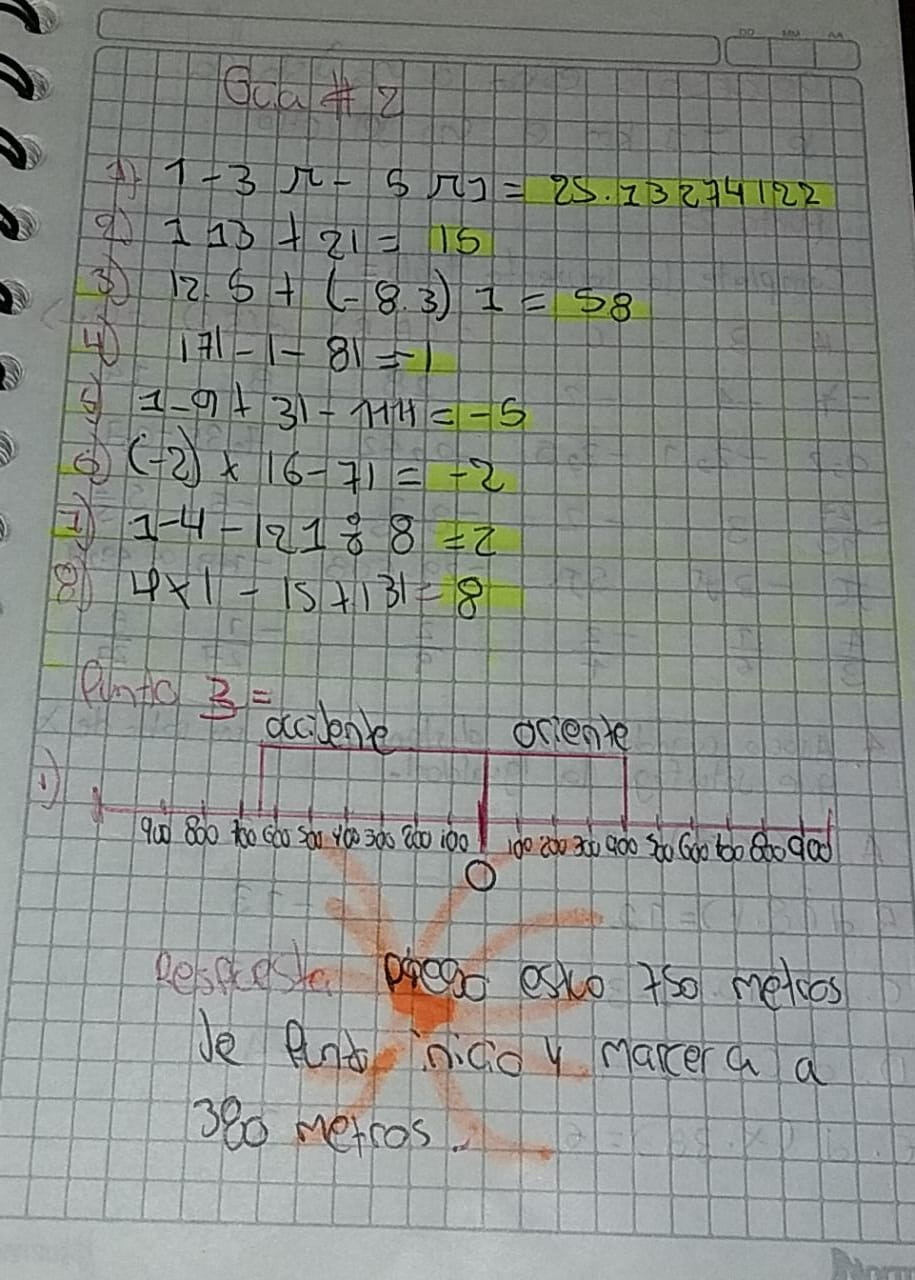 DD MM AA
Gia # 2
1) 1-3 π - 5 π1 = 25.13274122
2) 1 13 + 21 = 15
3) 12.5 + (-8.3) 1 = 58
4) 171 - 1 - 81 = -1
5) 1-9 + 31 - 1141 = -5
6) (-2) x 16-71 = -2
7) 1-4 - 121 ÷ 8 = 2
8) 4x1 - 15 + 131 = 8
Punto 3 =
occidente oriente
1)
900 800 700 600 500 400 300 200 100 100 200 300 400 500 600 700 800 900
0
Respuesta 750 metros
de Punto inicio y Marcer a a
380 metros.